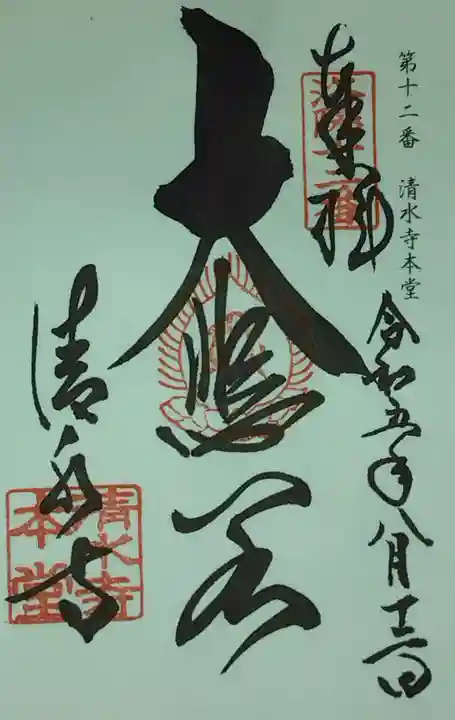 第十二番 清水寺本堂
令和五年八月十二日
奉拝
洛陽十二番
大悲閣
清水寺
清水寺
本堂